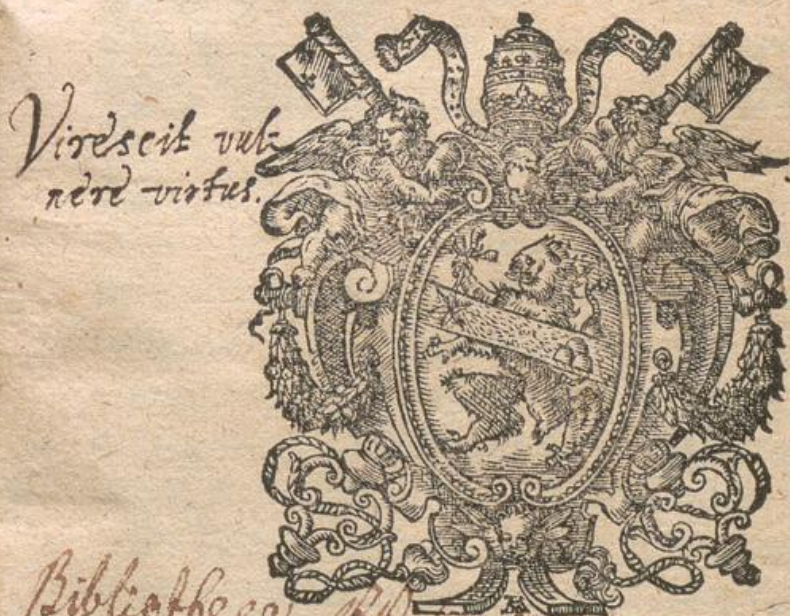 Virescit vul-
nere virtus.
Bibliothecae